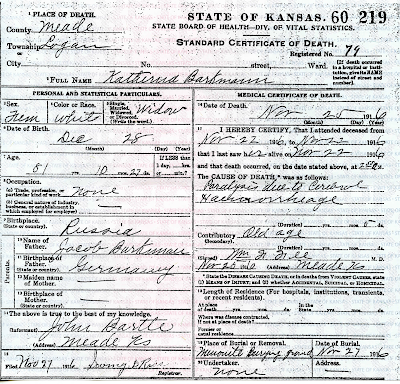 1 PLACE OF DEATH.
County Meade
Township Logan
City
No. street, Ward.
STATE OF KANSAS. 60 219
STATE BOARD OF HEALTH—DIV. OF VITAL STATISTICS.
STANDARD CERTIFICATE OF DEATH.
Registered No. 79
(If death occurred in a hospital or institution, give its NAME instead of street and number.)
2 FULL NAME Katherina Barkmann
PERSONAL AND STATISTICAL PARTICULARS.
3 Sex. Fem
4 Color or Race. White
5 Single, Married, Widowed, or Divorced. (Write the word.) Widow
6 Date of Birth.
Dec 28
(Month) (Day) (Year)
7 Age. 81 10 mos. 27 ds.
If LESS than 1 day, hrs. or min.?
8 Occupation.
(a) Trade, profession, or particular kind of work None
(b) General nature of industry, business, or establishment in which employed (or employer)
9 Birthplace. (State or country) Russia
Parents.
10 Name of Father. Jacob Barkman
11 Birthplace of Father. (State or country) Germany
12 Maiden name of Mother.
13 Birthplace of Mother. (State or country)
14 The above is true to the best of my knowledge.
(Informant) John Bartel
(Address) Meade Ks
15
Filed Nov 27 1916
Registrar.
MEDICAL CERTIFICATE OF DEATH.
16 Date of Death.
Nov 25 1916
(Month) (Day) (Year)
17 I HEREBY CERTIFY, That I attended deceased from
Nov 22 1916 to Nov 22 1916
that I saw her alive on Nov 22 1916
and that death occurred, on the date stated above, at m.
The CAUSE OF DEATH was as follows:
Paralysis due to Cerebral
Haemorrhage
(Duration) yrs. mos. 5 ds.
Contributory (Secondary) Old age
(Duration) yrs. mos. ds.
(Signed) M. D.
1916 (Address) Meade Ks
State the DISEASE CAUSING DEATH, or in deaths from VIOLENT CAUSES, state (1) MEANS OF INJURY; and (2) whether ACCIDENTAL, SUICIDAL, or HOMICIDAL.
18 Length of Residence (For hospitals, institutions, transients, or recent residents).
At place of death yrs. mos. ds. In the State yrs. mos. ds.
Where was disease contracted, if not at place of death?
Former or usual residence
19 Place of Burial or Removal. Date of Burial.
Mennonite Burying ground Nov 27 1916
20 Undertaker. Address.
None